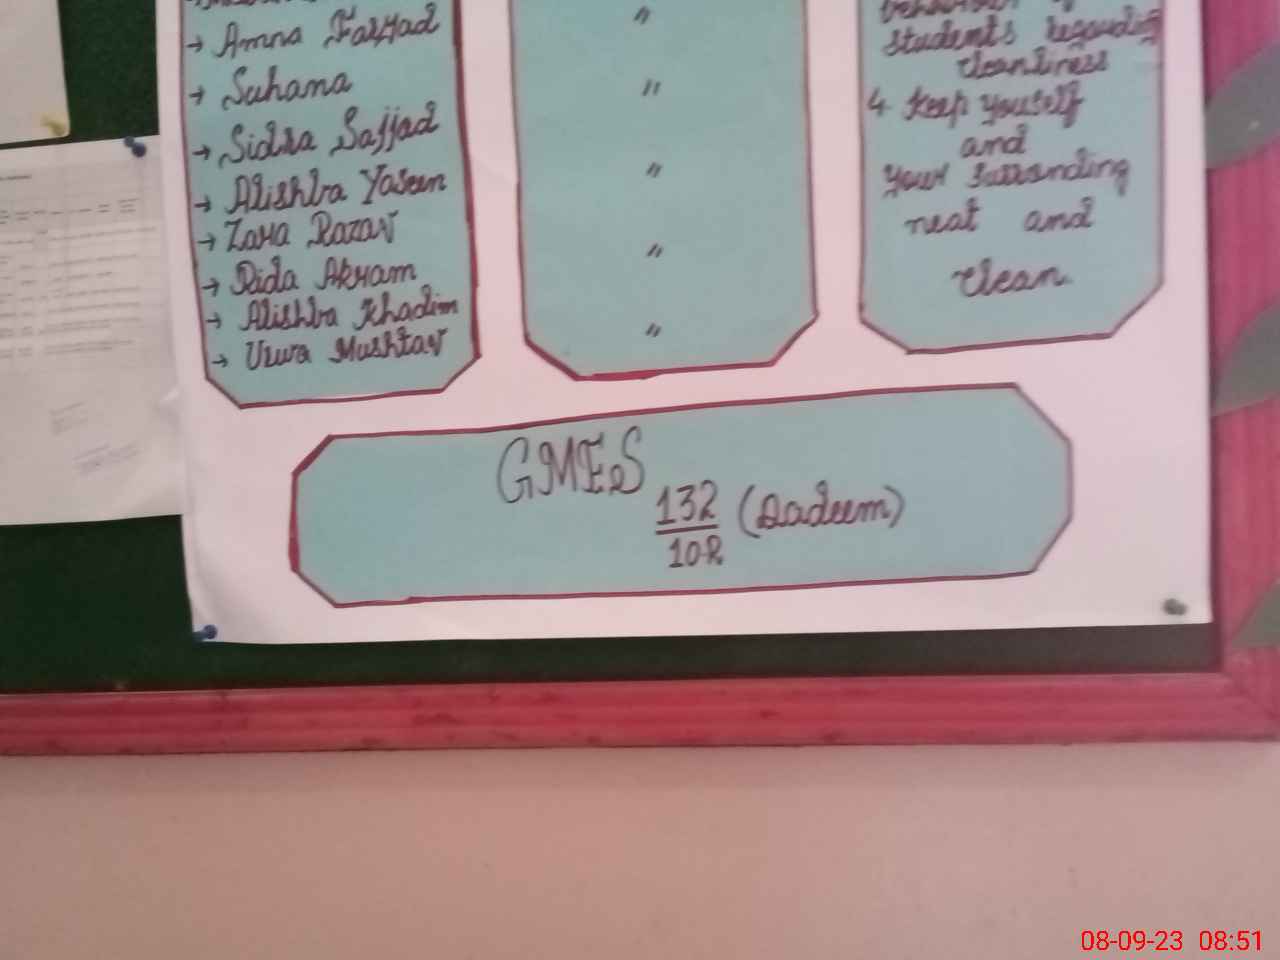 → Amna Farhad
→ Suhana
→ Sidra Sajjad
→ Alishba Yaseen
→ Zara Razav
→ Rida Akram
→ Alishba Khadim
→ Urwa Mushtav
"
"
"
"
"
students regarding
cleanliness
4 Keep youself
and
your surranding
neat and
clean.
GMES
132
10-R
(Dadeem)
08-09-23 08:51